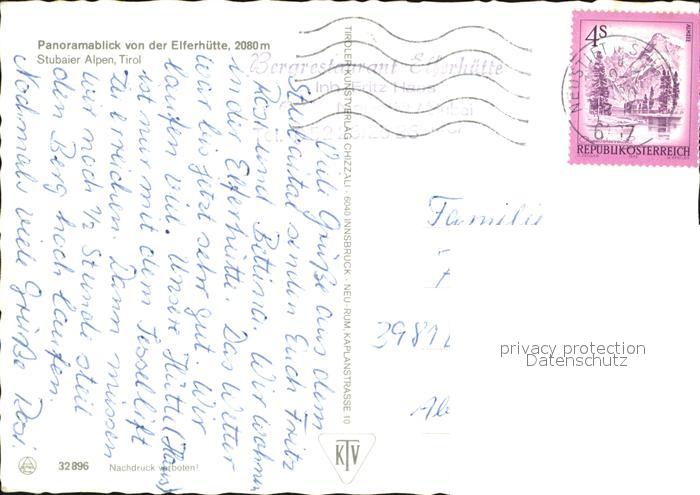 Panoramablick von der Elferhütte, 2080 m
Stubaier Alpen, Tirol
Bergrestaurant Elferhütte
Inh. Fritz Haas
Viele Grüße aus dem
Stubaital senden Euch Fritz
Rosi und Bettina. Wir wohnen
in der Elferhütte. Das Wetter
war bis jetzt sehr gut. Wir
laufen viel. Unsere Hütte (Haus)
ist nur mit dem Sessellift
zu erreichen. Dann müssen
wir noch ½ Stunde steil
den Berg hoch laufen.
Nochmals viele Grüße Rosi
TIROLER KUNSTVERLAG CHIZZALI · 6040 INNSBRUCK - NEU-RUM, KAPLANSTRASSE 10
KTV
32896 Nachdruck verboten!
4s
ALMSEE
REPUBLIK ÖSTERREICH
NEUSTIFT IM S
Familie
3981
privacy protection
Datenschutz